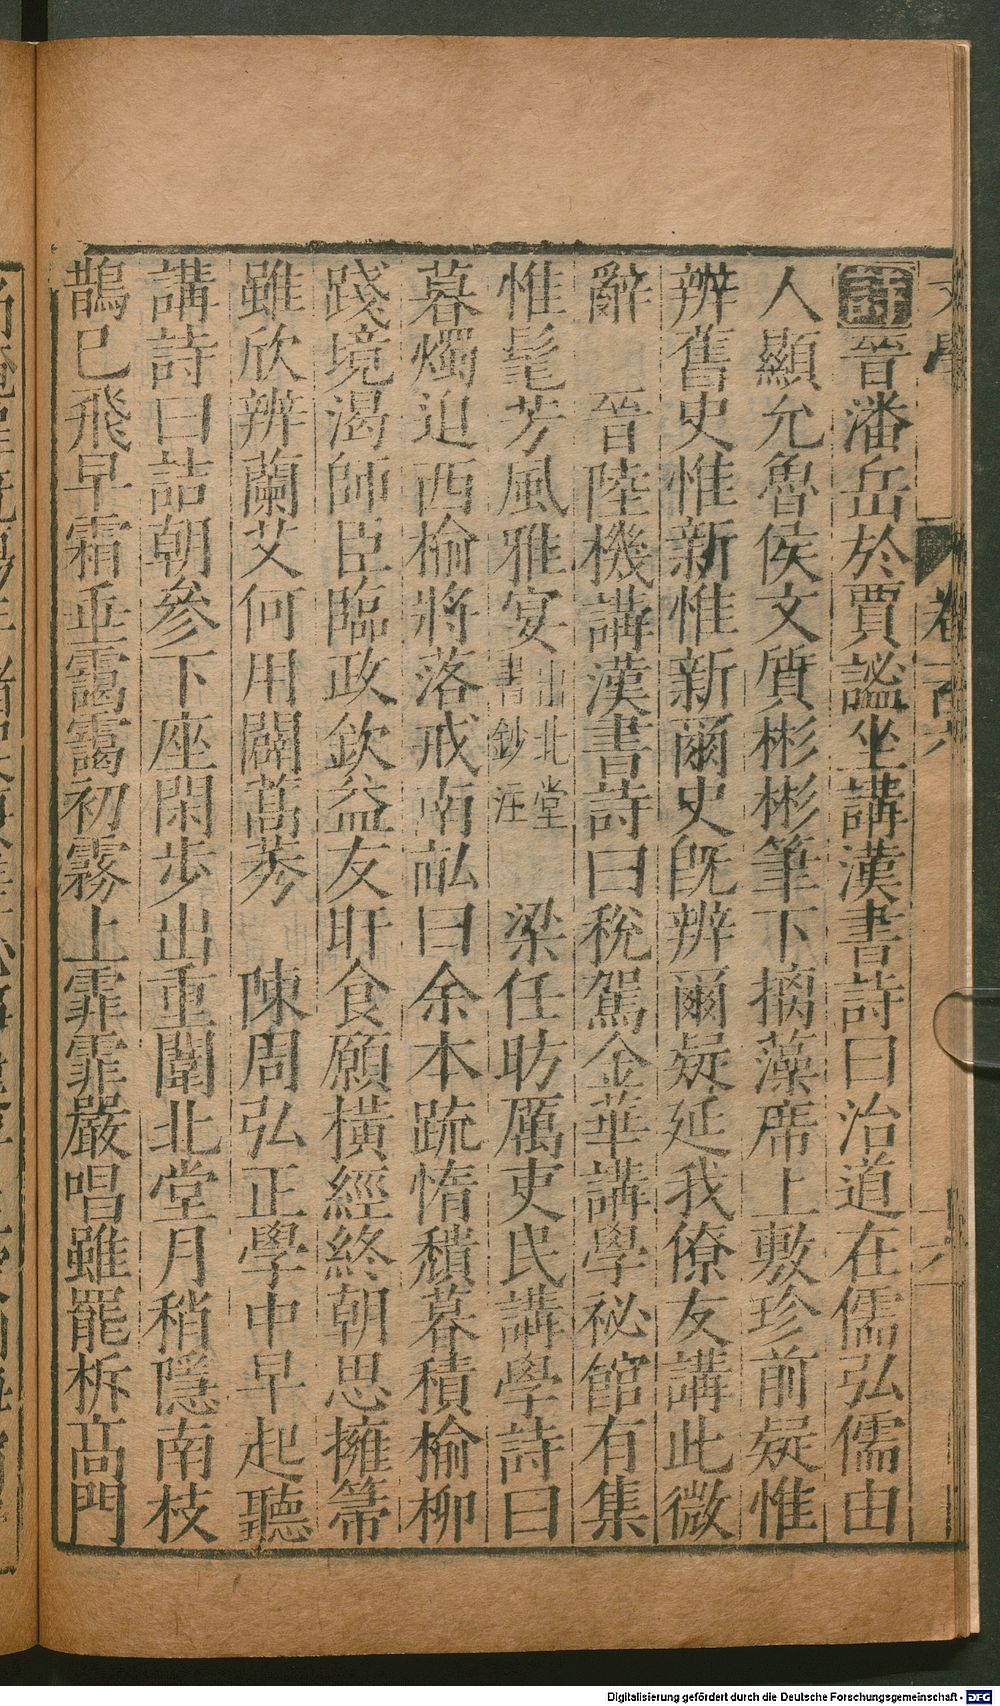 詩晉潘岳於賈謐坐講漢書詩曰治道在儒弘儒由
人顯允魯侯文質彬彬筆下摛藻席上敷珍前疑惟
辨舊史惟新惟新爾史旣辨爾疑延我僚友講此微
辭 晉陸機講漢書詩曰稅駕金華講學祕館有集
惟髦芳風雅宴出北堂書鈔注 梁任昉厲吏民講學詩曰
暮燭迫西榆將落戒南畝曰余本疏惰穨暮積榆柳
踐境渴師臣臨政欽益友旰食願橫經終朝思擁箒
雖欣辨蘭艾何用闢蒿莠 陳周弘正學中早起聽
講詩曰詰朝參下座閑步出重闈北堂月稍隱南枝
鵲已飛早霜垂靄靄初霧上霏霏嚴唱雖罷柝高門
文學
卷
Digitalisierung gefördert durch die Deutsche Forschungsgemeinschaft - DFG